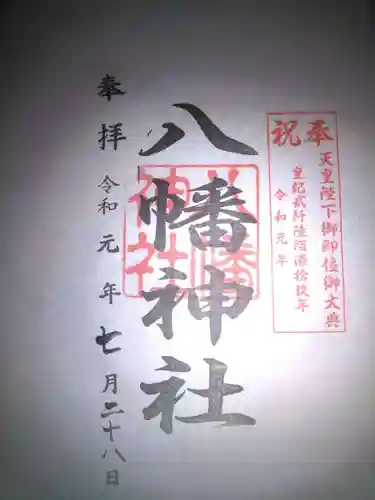 奉祝
天皇陛下御即位御大典
皇紀弐阡陸百漆拾玖年
令和元年
八幡神社
八幡
神社
奉拝
令和元年七月二十八日